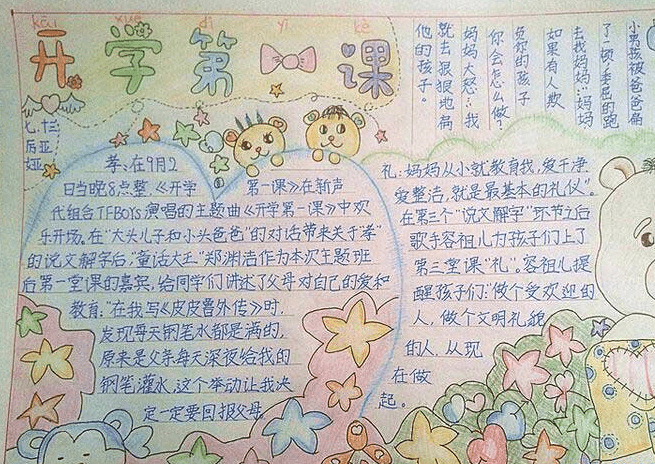 kāi xué dì yī kè
开学第一课
七.十三
厉亚
娅
小男孩被爸爸扁
了一顿，委屈的跑
去找妈妈…妈妈
如果有人欺
负你的孩子
你会怎么做？
妈妈大怒…我
就去狠狠地扁
他的孩子。
孝：在9月2
日当晚8点整，《开学第一课》在新声
代组合TFBOYS演唱的主题曲《开学第一课》中欢
乐开场。在“大头儿子和小头爸爸”的对话带来关于“孝”
的说文解字后，“童话大王”郑渊洁作为本次主题班
后第一堂课的嘉宾，给同学们讲述了父母对自己的爱和
教育：“在我写《皮皮鲁外传》时，
发现每天钢笔水都是满的，
原来是父亲每天深夜给我的
钢笔灌水，这个举动让我决
定一定要回报父母
礼：妈妈从小就教育我，爱干净
爱整洁，就是最基本的礼仪”。
在第三个“说文解字”环节之后
歌手容祖儿为孩子们上了
第三堂课“礼”。容祖儿提
醒孩子们：“做个受欢迎的
人，做个文明礼貌
的人，从现
在做
起。